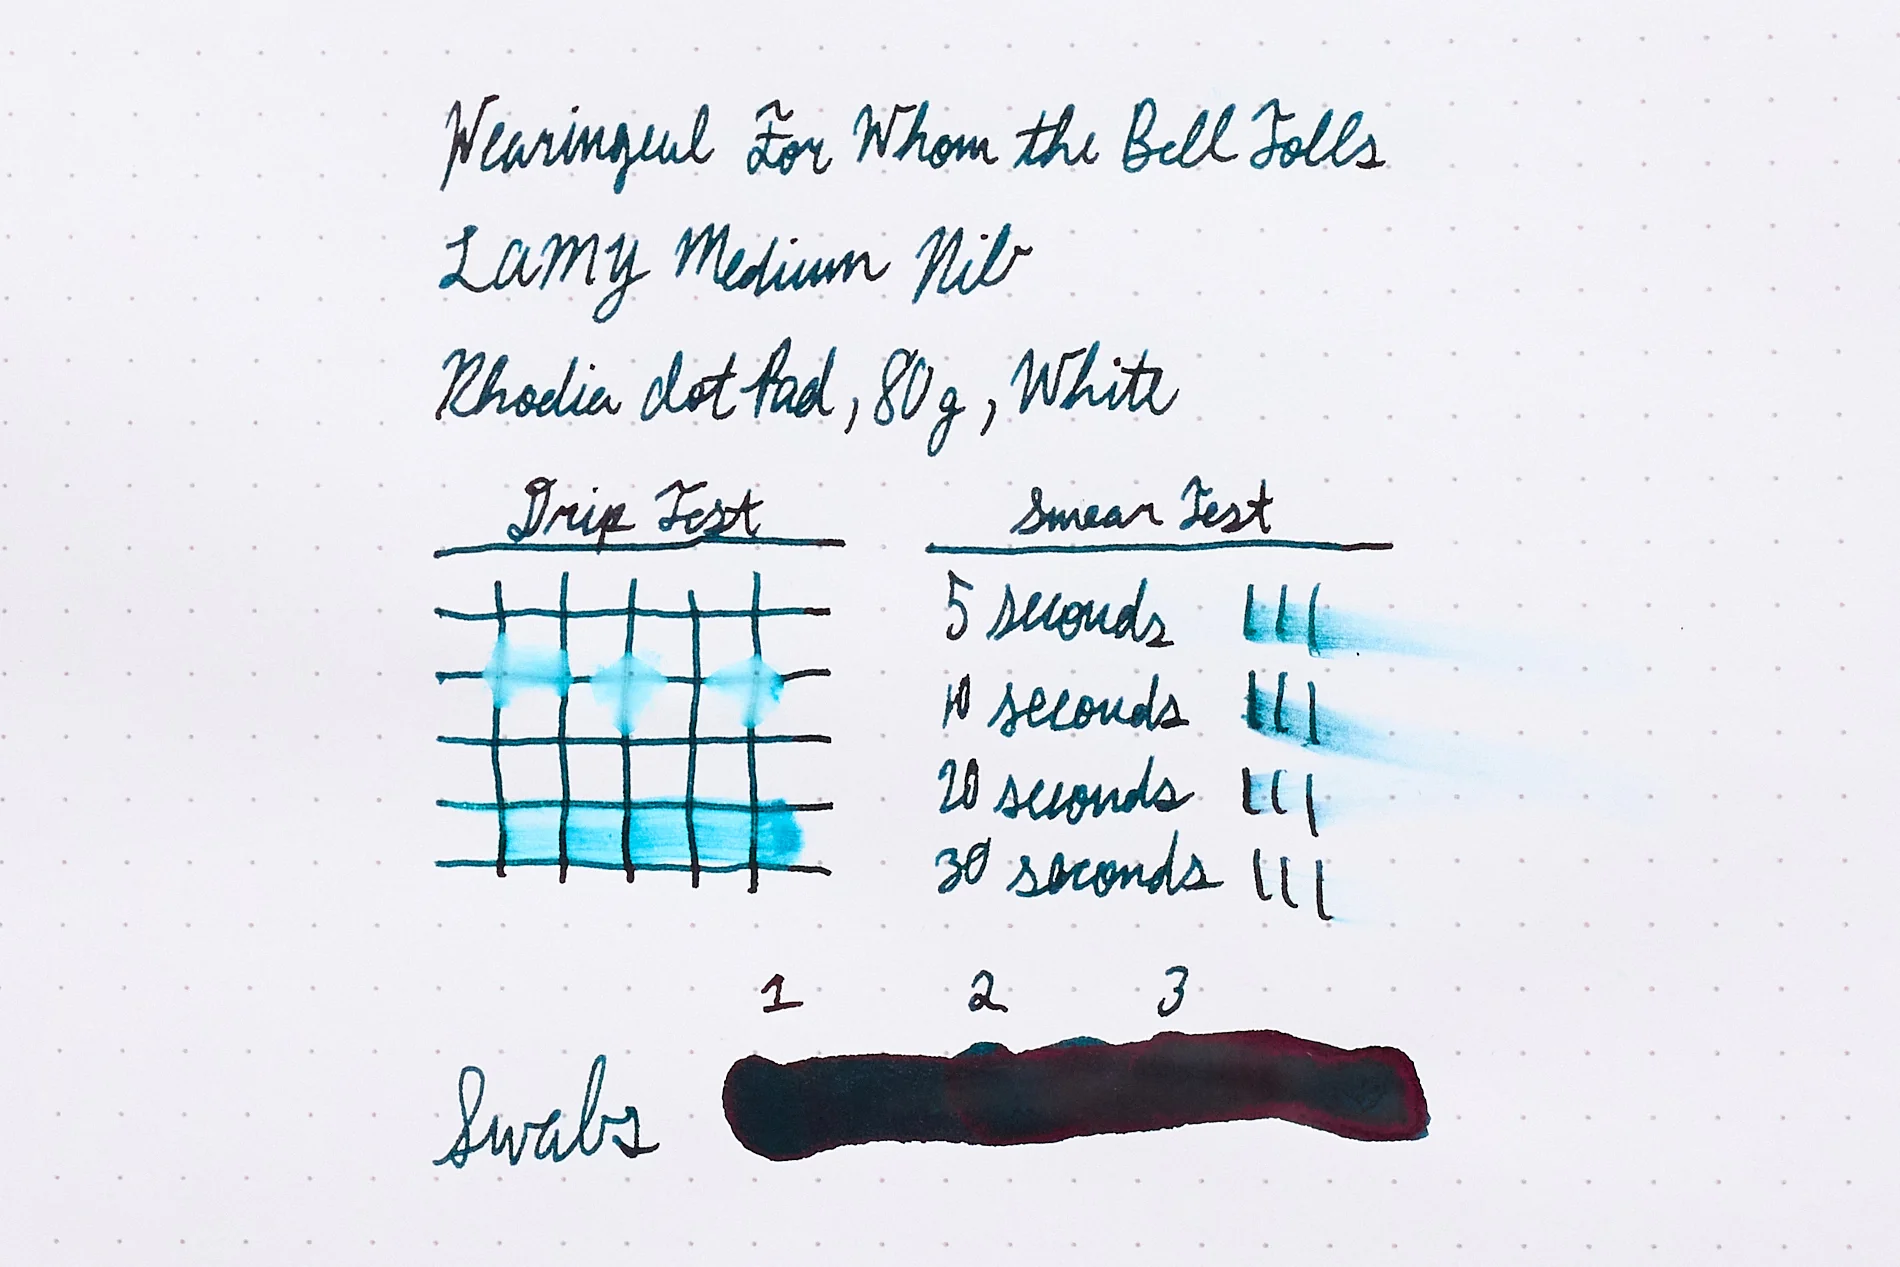 Wearingeul For Whom the Bell Tolls
LAMY Medium Nib
Rhodia dot Pad, 80g, White
Drip Test
Smear Test
5 seconds
10 seconds
20 seconds
30 seconds
1 2 3
Swabs